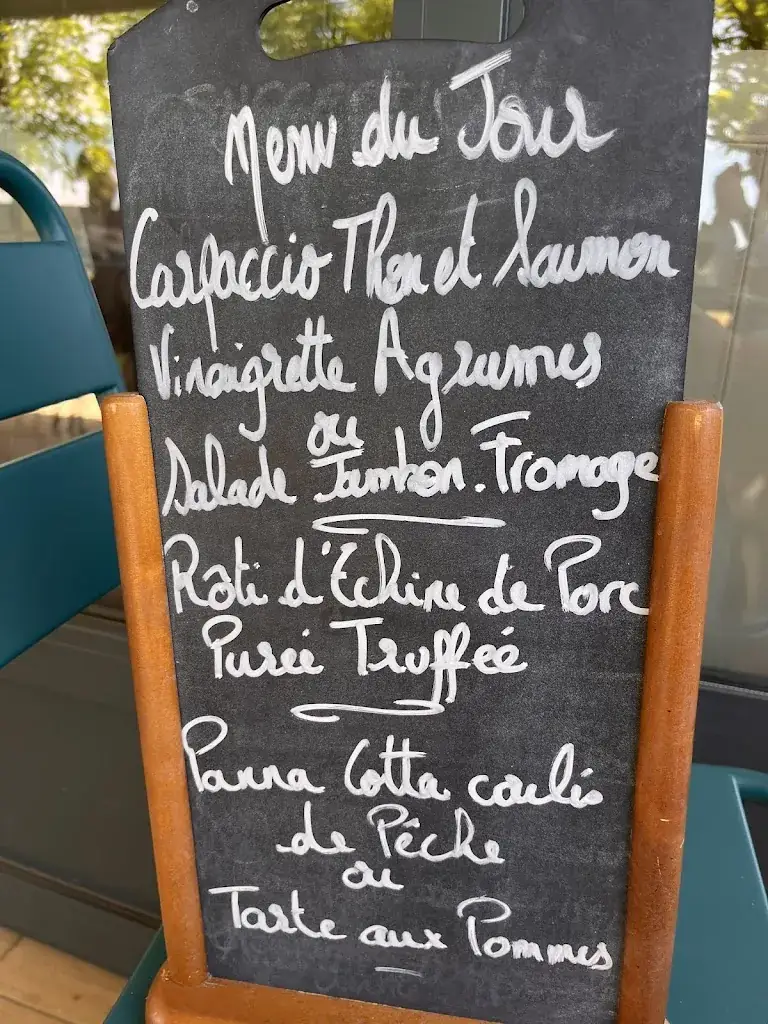 Menu du Jour
Carpaccio Thon et Saumon
Vinaigrette Agrumes
ou
Salade Jambon. Fromage
Rôti d'Echine de Porc
Purée Truffée
Panna Cotta coulis
de Pêche
ou
Tarte aux Pommes